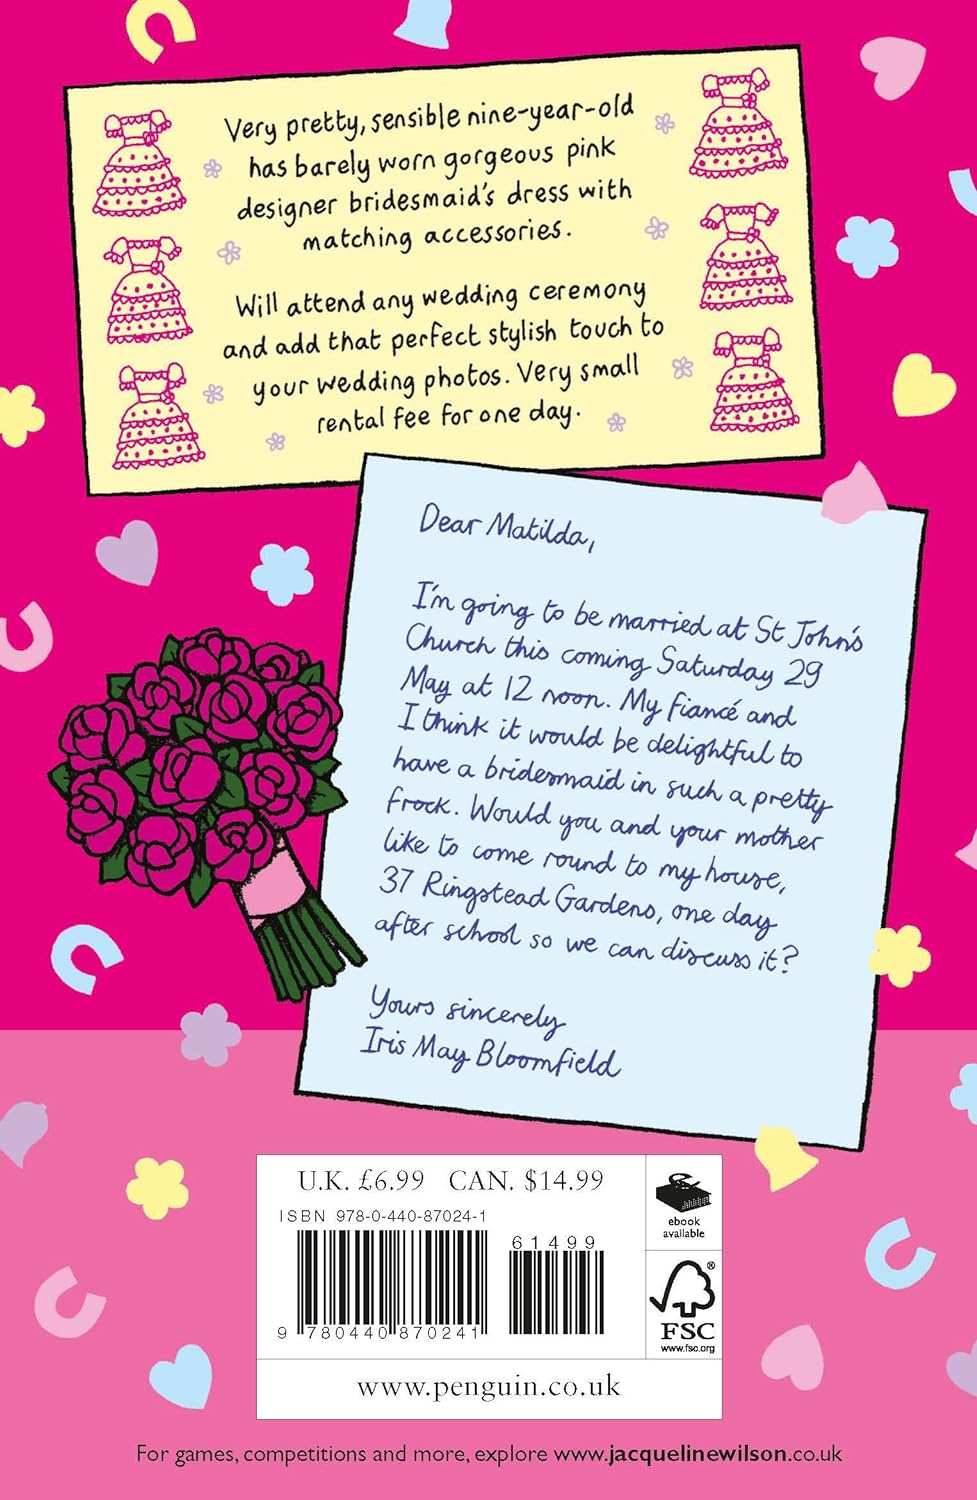 Very pretty, sensible nine-year-old
has barely worn gorgeous pink
designer bridesmaid's dress with
matching accessories.
Will attend any wedding ceremony
and add that perfect stylish touch to
your wedding photos. Very small
rental fee for one day.
Dear Matilda,
I'm going to be married at St John's
Church this coming Saturday 29
May at 12 noon. My fiancé and
I think it would be delightful to
have a bridesmaid in such a pretty
frock. Would you and your mother
like to come round to my house,
37 Ringstead Gardens, one day
after school so we can discuss it?
Yours sincerely
Iris May Bloomfield
U.K. £6.99 CAN. $14.99
ISBN 978-0-440-87024-1
61499
9 780440 870241
ebook
available
®
FSC
www.fsc.org
www.penguin.co.uk
For games, competitions and more, explore www.jacquelinewilson.co.uk